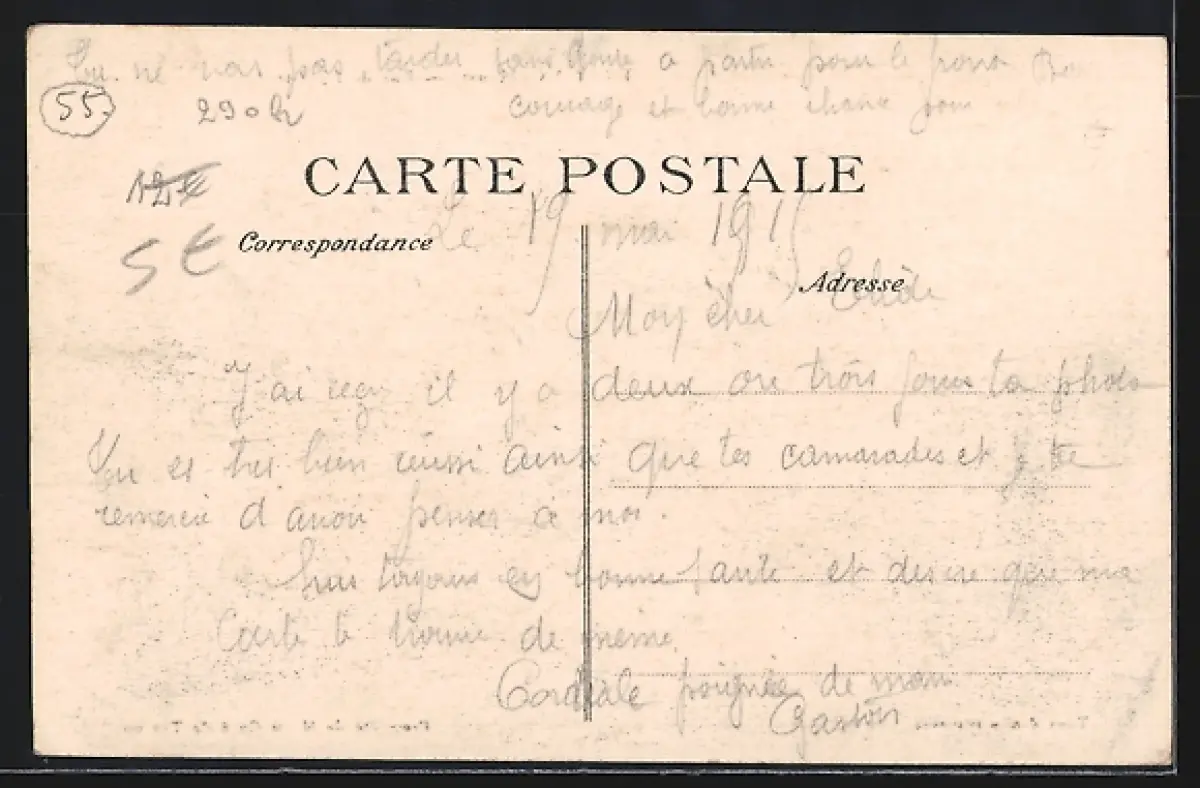 Tu ne vas pas tarder sans doute a partir pour le front Bon
55
290
courage et bonne chance
12 €
CARTE POSTALE
5 €
Correspondance
Le 19 mai 1915
Adresse
Mon cher
J'ai reçu il y a deux ou trois jours ta photo
Tu es tres bien reussi ainsi que tes camarades et je te
remercie d'avoir penser a moi.
Suis toujours en bonne santé et desire que ma
Carte te trouve de même
Cordiale poignée de main
Gaston